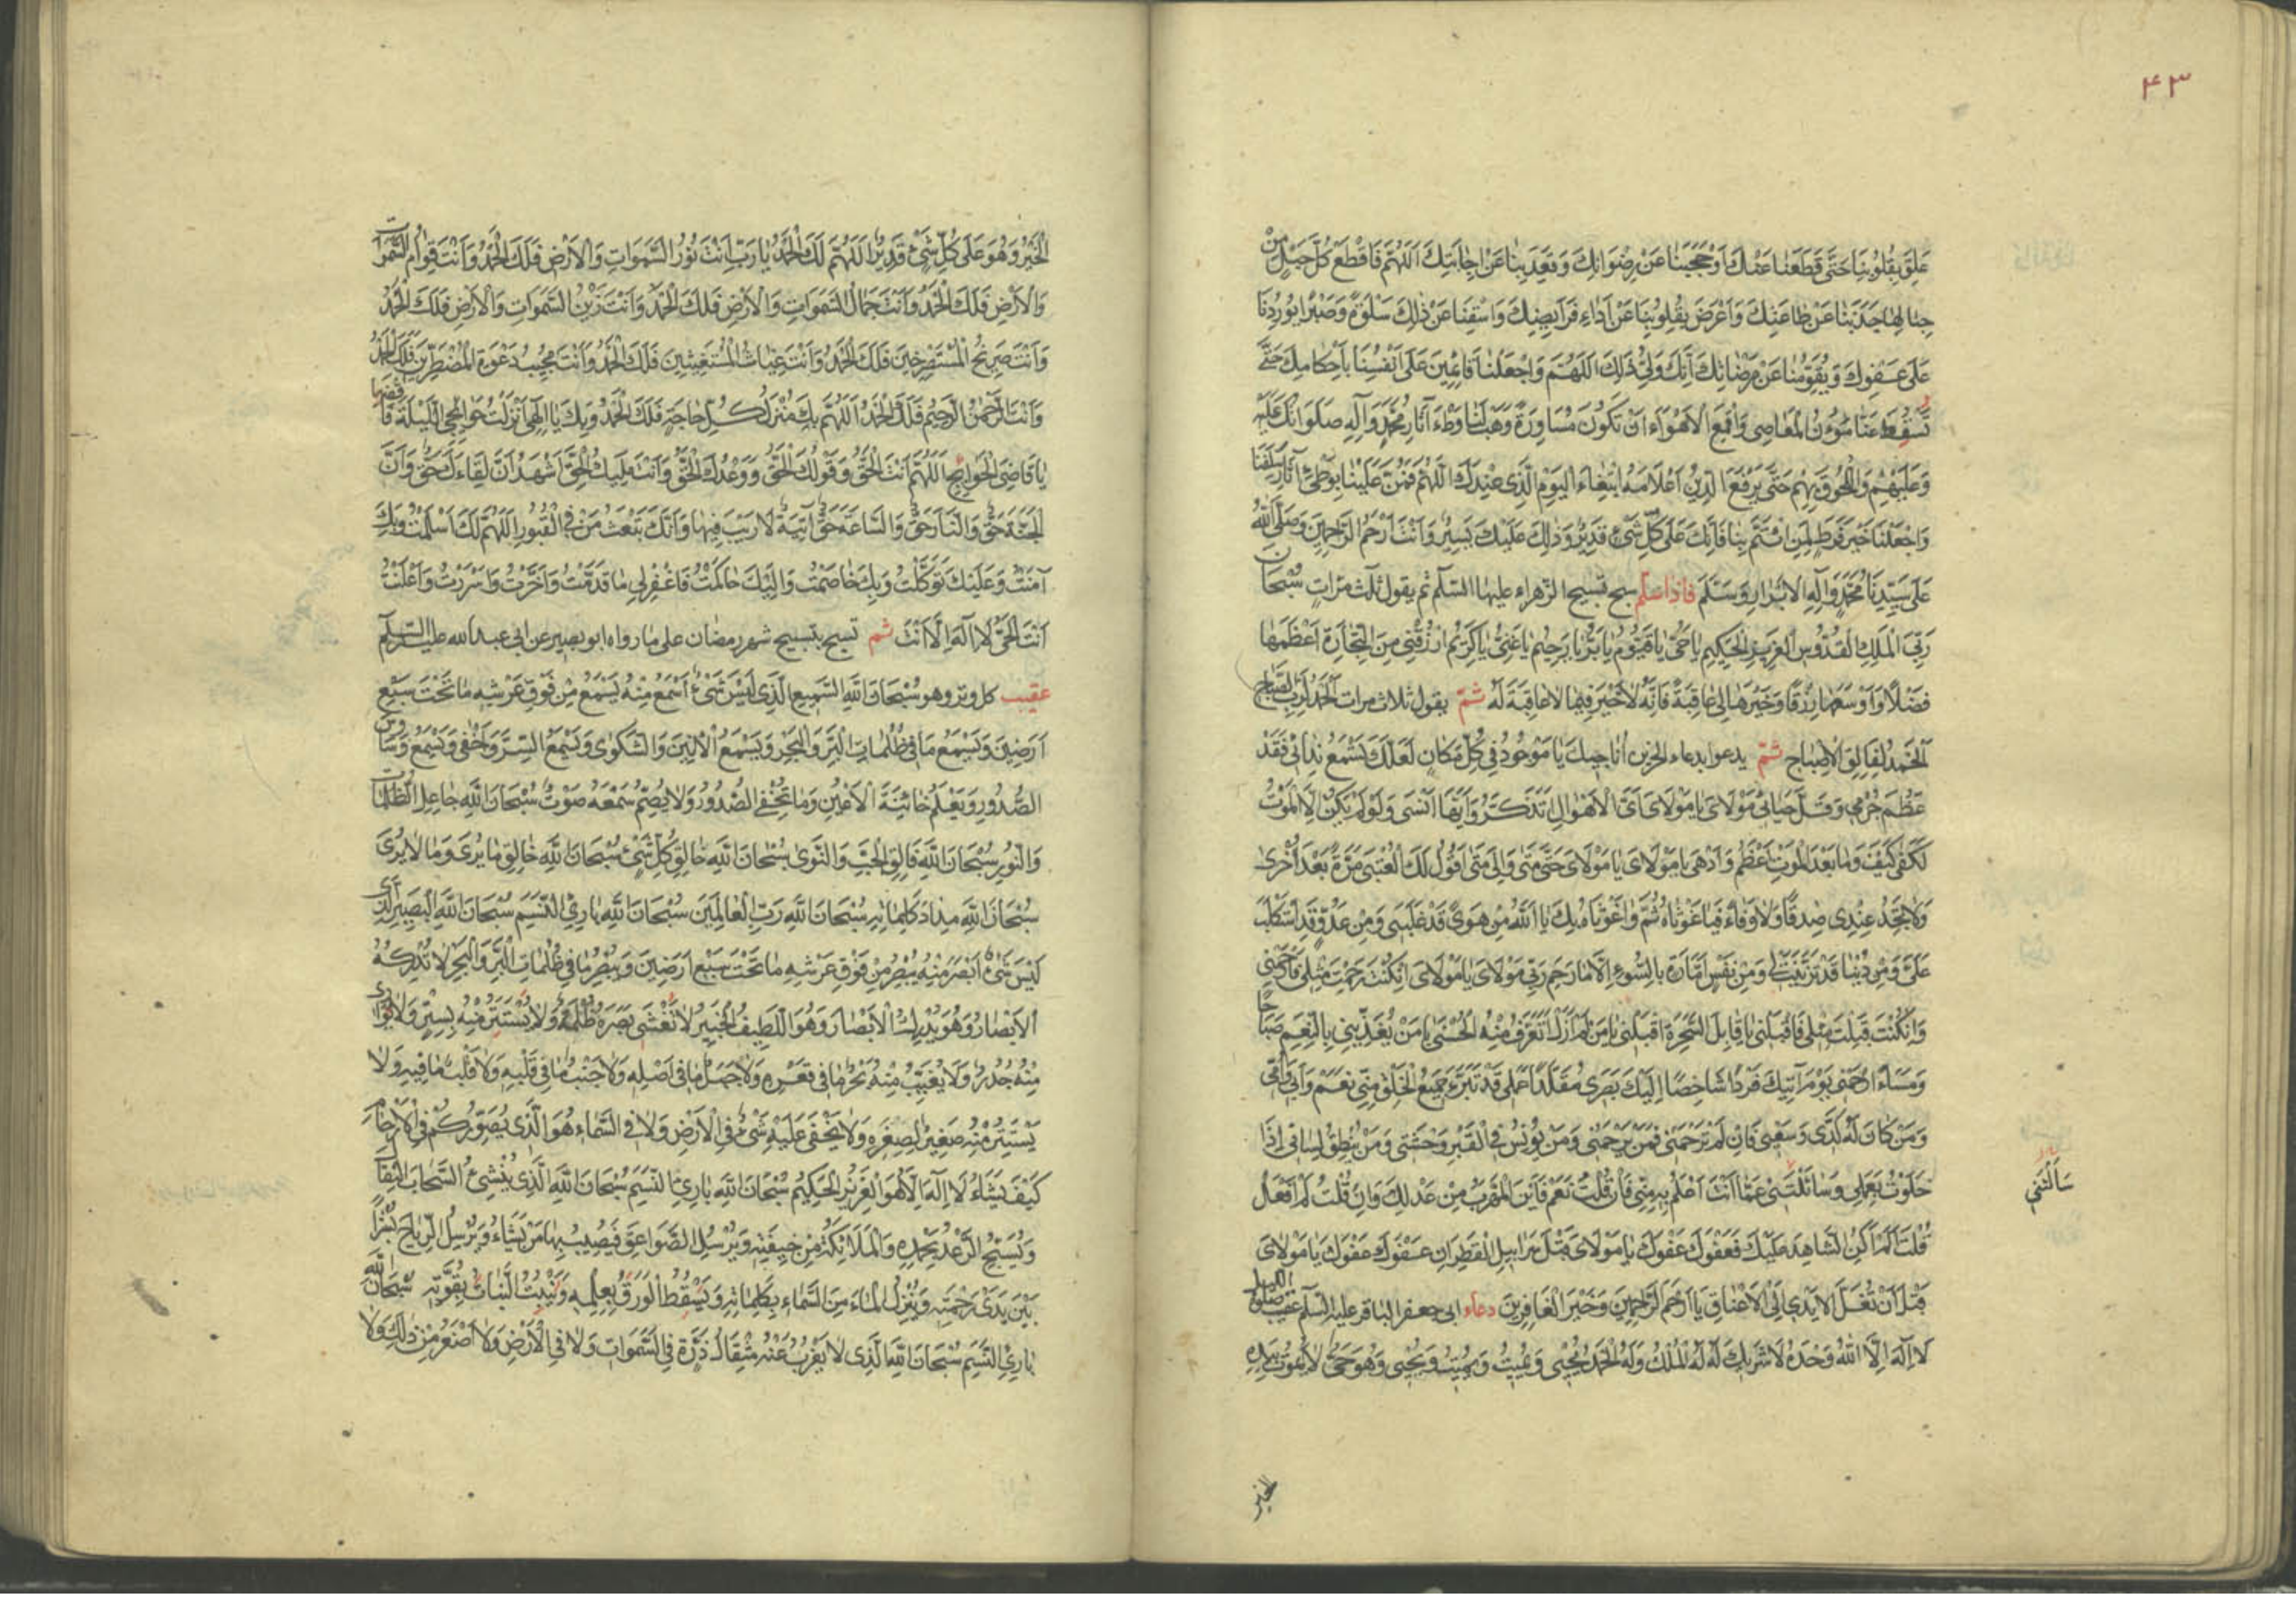 ٤٣
عَلِقَ بِقُلُوبِنَا حَتَّى قَطَعَنَا عَنْكَ اَوْ حَجَبَنَا عَنْ رِضْوَانِكَ وَقَعَدَ بِنَا عَنْ اِجَابَتِكَ اَللّٰهُمَّ فَاقْطَعْ كُلَّ حَبْلٍ مِنْ
حِبَالِهَا جَذَبَنَا عَنْ طَاعَتِكَ وَاَعْرَضَ بِقُلُوبِنَا عَنْ اَدَاءِ فَرَايِضِكَ وَاسْقِنَا عَنْ ذٰلِكَ سَلْوَةً وَصَبْرًا يُورِدُنَا
عَلَى عَفْوِكَ وَيُقَوِّمُنَا عَنْ مَرْضَاتِكَ اِنَّكَ وَلِيُّ ذَلِكَ اَللّٰهُمَّ وَاجْعَلْنَا قَائِمِينَ عَلَى اَنْفُسِنَا بِاَحْكَامِكَ حَتَّى
تُسْقِطَ عَنَّا مُؤَنَ الْمَعَاصِي وَاقْمَعِ الْاَهْوَاءَ اَنْ تَكُونَ مُسَاوِرَةً وَهَبْ لَنَا وَطْءَ آثَارِ مُحَمَّدٍ وَآلِهِ صَلَوَاتُكَ عَلَيْهِ
وَعَلَيْهِمْ وَاللُّحُوقَ بِهِمْ حَتَّى يَرْفَعَ الدِّينُ اَعْلَامَهُ ابْتِغَاءَ الْيَوْمِ الَّذِي عِنْدَكَ اَللّٰهُمَّ فَمُنَّ عَلَيْنَا بِوَطْئِ آثَارِ سَلَفِنَا
وَاجْعَلْنَا خَيْرَ فَرَطٍ لِمَنِ ائْتَمَّ بِنَا فَاِنَّكَ عَلَى كُلِّ شَيْءٍ قَدِيرٌ وَذٰلِكَ عَلَيْكَ يَسِيرٌ وَاَنْتَ اَرْحَمُ الرَّاحِمِينَ وَصَلَّى اللّٰهُ
عَلَى سَيِّدِنَا مُحَمَّدٍ وَآلِهِ الْاَبْرَارِ وَسَلَّمَ فاذا سلم سبح تسبيح الزهراء عليها السلام ثم يقول ثلث مرات سُبْحَانَ
رَبِّيَ الْمَلِكِ الْقُدُّوسِ الْعَزِيزِ الْحَكِيمِ يَا حَيُّ يَا قَيُّومُ يَا بَرُّ يَا رَحِيمُ يَا غَنِيُّ يَا كَرِيمُ ارْزُقْنِي مِنَ التِّجَارَةِ اَعْظَمَهَا
فَضْلًا وَاَوْسَعَهَا رِزْقًا وَخَيْرَهَا لِي عَاقِبَةً فَاِنَّهُ لَا خَيْرَ فِيمَا لَا عَاقِبَةَ لَهُ ثم يقول ثلاث مرات اَلْحَمْدُ لِرَبِّ الصَّبَاحِ
اَلْحَمْدُ لِفَالِقِ الْاِصْبَاحِ ثم يدعو بدعاء الحزين اُنَاجِيكَ يَا مَوْجُودُ فِي كُلِّ مَكَانٍ لَعَلَّكَ تَسْمَعُ نِدَائِي فَقَدْ
عَظُمَ جُرْمِي وَقَلَّ حَيَائِي مَوْلَايَ يَا مَوْلَايَ اَيَّ الْاَهْوَالِ اَتَذَكَّرُ وَاَيَّهَا اَنْسَى وَلَوْ لَمْ يَكُنْ اِلَّا الْمَوْتُ
لَكَفَى كَيْفَ وَمَا بَعْدَ الْمَوْتِ اَعْظَمُ وَاَدْهَى يَا مَوْلَايَ يَا مَوْلَايَ حَتَّى مَتَى وَاِلَى مَتَى اَقُولُ لَكَ الْعُتْبَى مَرَّةً بَعْدَ اُخْرَى
وَلَا تَجِدُ عِنْدِي صِدْقًا وَلَا وَفَاءً فَيَا غَوْثَاهُ ثُمَّ وَاغَوْثَاهُ بِكَ يَا اَللّٰهُ مِنْ هَوًى قَدْ غَلَبَنِي وَمِنْ عَدُوٍّ قَدِ اسْتَكْلَبَ
عَلَيَّ وَمِنْ دُنْيَا قَدْ تَزَيَّنَتْ لِي وَمِنْ نَفْسٍ اَمَّارَةٍ بِالسُّوءِ اِلَّا مَا رَحِمَ رَبِّي مَوْلَايَ يَا مَوْلَايَ اِنْ كُنْتَ رَحِمْتَ مِثْلِي فَارْحَمْنِي
وَاِنْ كُنْتَ قَبِلْتَ مِثْلِي فَاقْبَلْنِي يَا قَابِلَ السَّحَرَةِ اقْبَلْنِي يَا مَنْ لَمْ اَزَلْ اَتَعَرَّفُ مِنْهُ الْحُسْنَى يَا مَنْ يُغَذِّينِي بِالنِّعَمِ صَبَاحًا
وَمَسَاءً ارْحَمْنِي يَوْمَ آتِيكَ فَرْدًا شَاخِصًا اِلَيْكَ بَصَرِي مُقَلَّدًا عَمَلِي قَدْ تَبَرَّءَ جَمِيعُ الْخَلْقِ مِنِّي نَعَمْ وَاَبِي وَاُمِّي
وَمَنْ كَانَ لَهُ كَدِّي وَسَعْيِي فَاِنْ لَمْ تَرْحَمْنِي فَمَنْ يَرْحَمُنِي وَمَنْ يُونِسُ فِي الْقَبْرِ وَحْشَتِي وَمَنْ يُنْطِقُ لِسَانِي اِذَا
خَلَوْتُ بِعَمَلِي وَسَائَلْتَنِي عَمَّا اَنْتَ اَعْلَمُ بِهِ مِنِّي فَاِنْ قُلْتُ نَعَمْ فَاَيْنَ الْمَهْرَبُ مِنْ عَدْلِكَ وَاِنْ قُلْتُ لَمْ اَفْعَلْ
سَاَلْتَنِي
قُلْتَ اَلَمْ اَكُنِ الشَّاهِدَ عَلَيْكَ فَعَفْوَكَ عَفْوَكَ يَا مَوْلَايَ قَبْلَ سَرَابِيلِ الْقَطِرَانِ عَفْوَكَ عَفْوَكَ يَا مَوْلَايَ
قَبْلَ اَنْ تُغَلَّ الْاَيْدِي اِلَى الْاَعْنَاقِ يَا اَرْحَمَ الرَّاحِمِينَ وَخَيْرَ الْغَافِرِينَ دعاء ابي جعفر الباقر عليه السلام عقيب صلوة الليل
لَا اِلٰهَ اِلَّا اللّٰهُ وَحْدَهُ لَا شَرِيكَ لَهُ لَهُ الْمُلْكُ وَلَهُ الْحَمْدُ يُحْيِي وَيُمِيتُ وَيُمِيتُ وَيُحْيِي وَهُوَ حَيٌّ لَا يَمُوتُ بِيَدِهِ
الخير
الْخَيْرُ وَهُوَ عَلَى كُلِّ شَيْءٍ قَدِيرٌ اَللّٰهُمَّ لَكَ الْحَمْدُ يَا رَبِّ اَنْتَ نُورُ السَّمَوَاتِ وَالْاَرْضِ فَلَكَ الْحَمْدُ وَاَنْتَ قِوَامُ السَّمَوَاتِ
وَالْاَرْضِ فَلَكَ الْحَمْدُ وَاَنْتَ جَمَالُ السَّمَوَاتِ وَالْاَرْضِ فَلَكَ الْحَمْدُ وَاَنْتَ زَيْنُ السَّمَوَاتِ وَالْاَرْضِ فَلَكَ الْحَمْدُ
وَاَنْتَ صَرِيخُ الْمُسْتَصْرِخِينَ فَلَكَ الْحَمْدُ وَاَنْتَ غِيَاثُ الْمُسْتَغِيثِينَ فَلَكَ الْحَمْدُ وَاَنْتَ مُجِيبُ دَعْوَةِ الْمُضْطَرِّينَ فَلَكَ الْحَمْدُ
وَاَنْتَ الرَّحْمٰنُ الرَّحِيمُ فَلَكَ الْحَمْدُ اَللّٰهُمَّ بِكَ مُنْزَلُ كُلِّ حَاجَةٍ فَلَكَ الْحَمْدُ وَبِكَ يَا اِلٰهِي اَنْزَلْتُ حَوَائِجِي اللَّيْلَةَ فَاقْضِهَا
يَا قَاضِيَ الْحَوَائِجِ اَللّٰهُمَّ اَنْتَ الْحَقُّ وَقَوْلُكَ الْحَقُّ وَوَعْدُكَ الْحَقُّ وَاَنْتَ مَلِيكُ الْحَقِّ اَشْهَدُ اَنَّ لِقَاءَكَ حَقٌّ وَاَنَّ
الْجَنَّةَ حَقٌّ وَالنَّارَ حَقٌّ وَالسَّاعَةَ حَقٌّ آتِيَةٌ لَا رَيْبَ فِيهَا وَاَنَّكَ تَبْعَثُ مَنْ فِي الْقُبُورِ اَللّٰهُمَّ لَكَ اَسْلَمْتُ وَبِكَ
آمَنْتُ وَعَلَيْكَ تَوَكَّلْتُ وَبِكَ خَاصَمْتُ وَاِلَيْكَ حَاكَمْتُ فَاغْفِرْ لِي مَا قَدَّمْتُ وَاَخَّرْتُ وَاَسْرَرْتُ وَاَعْلَنْتُ
اَنْتَ الْحَيُّ لَا اِلٰهَ اِلَّا اَنْتَ ثم تسبح بتسبيح شهر رمضان على ما رواه ابو بصير عن ابي عبد الله عليه السلام
عقيب كل وتر وهو سُبْحَانَ اللّٰهِ السَّمِيعِ الَّذِي لَيْسَ شَيْءٌ اَسْمَعَ مِنْهُ يَسْمَعُ مِنْ فَوْقِ عَرْشِهِ مَا تَحْتَ سَبْعِ
اَرَضِينَ وَيَسْمَعُ مَا فِي ظُلُمَاتِ الْبَرِّ وَالْبَحْرِ وَيَسْمَعُ الْاَنِينَ وَالشَّكْوَى وَيَسْمَعُ السِّرَّ وَاَخْفَى وَيَسْمَعُ وَسَاوِسَ
الصُّدُورِ وَيَعْلَمُ خَائِنَةَ الْاَعْيُنِ وَمَا تُخْفِي الصُّدُورُ وَلَا يُصِمُّ سَمْعَهُ صَوْتٌ سُبْحَانَ اللّٰهِ جَاعِلِ الظُّلُمَاتِ
وَالنُّورِ سُبْحَانَ اللّٰهِ فَالِقِ الْحَبِّ وَالنَّوَى سُبْحَانَ اللّٰهِ خَالِقِ كُلِّ شَيْءٍ سُبْحَانَ اللّٰهِ خَالِقِ مَا يُرَى وَمَا لَا يُرَى
سُبْحَانَ اللّٰهِ مِدَادَ كَلِمَاتِهِ سُبْحَانَ اللّٰهِ رَبِّ الْعَالَمِينَ سُبْحَانَ اللّٰهِ بَارِئِ النَّسَمِ سُبْحَانَ اللّٰهِ الْبَصِيرِ الَّذِي
لَيْسَ شَيْءٌ اَبْصَرَ مِنْهُ يُبْصِرُ مِنْ فَوْقِ عَرْشِهِ مَا تَحْتَ سَبْعِ اَرَضِينَ وَيُبْصِرُ مَا فِي ظُلُمَاتِ الْبَرِّ وَالْبَحْرِ لَا تُدْرِكُهُ
الْاَبْصَارُ وَهُوَ يُدْرِكُ الْاَبْصَارَ وَهُوَ اللَّطِيفُ الْخَبِيرُ لَا تُغْشِي بَصَرَهُ ظُلْمَةٌ وَلَا يُسْتَتَرُ مِنْهُ بِسِتْرٍ وَلَا يُوَارِي
مِنْهُ جُدُرٌ وَلَا يُغَيِّبُ مِنْهُ بَحْرٌ مَا فِي قَعْرِهِ وَلَا جَبَلٌ مَا فِي اَصْلِهِ وَلَا جَنْبٌ مَا فِي قَلْبِهِ وَلَا قَلْبٌ مَا فِيهِ وَلَا
يَسْتَتِرُ مِنْهُ صَغِيرٌ لِصِغَرِهِ وَلَا يَخْفَى عَلَيْهِ شَيْءٌ فِي الْاَرْضِ وَلَا فِي السَّمَاءِ هُوَ الَّذِي يُصَوِّرُكُمْ فِي الْاَرْحَامِ
كَيْفَ يَشَاءُ لَا اِلٰهَ اِلَّا هُوَ الْعَزِيزُ الْحَكِيمُ سُبْحَانَ اللّٰهِ بَارِئِ النَّسَمِ سُبْحَانَ اللّٰهِ الَّذِي يُنْشِئُ السَّحَابَ الثِّقَالَ
وَيُسَبِّحُ الرَّعْدُ بِحَمْدِهِ وَالْمَلَائِكَةُ مِنْ خِيفَتِهِ وَيُرْسِلُ الصَّوَاعِقَ فَيُصِيبُ بِهَا مَنْ يَشَاءُ وَيُرْسِلُ الرِّيَاحَ بُشْرًا
بَيْنَ يَدَيْ رَحْمَتِهِ وَيُنْزِلُ الْمَاءَ مِنَ السَّمَاءِ بِكَلِمَاتِهِ وَيَسْقُطُ الْوَرَقُ بِعِلْمِهِ وَيَنْبُتُ النَّبَاتُ بِقُوَّتِهِ سُبْحَانَ اللّٰهِ
بَارِئِ النَّسَمِ سُبْحَانَ اللّٰهِ الَّذِي لَا يَعْزُبُ عَنْهُ مِثْقَالُ ذَرَّةٍ فِي السَّمَوَاتِ وَلَا فِي الْاَرْضِ وَلَا اَصْغَرُ مِنْ ذٰلِكَ وَلَا